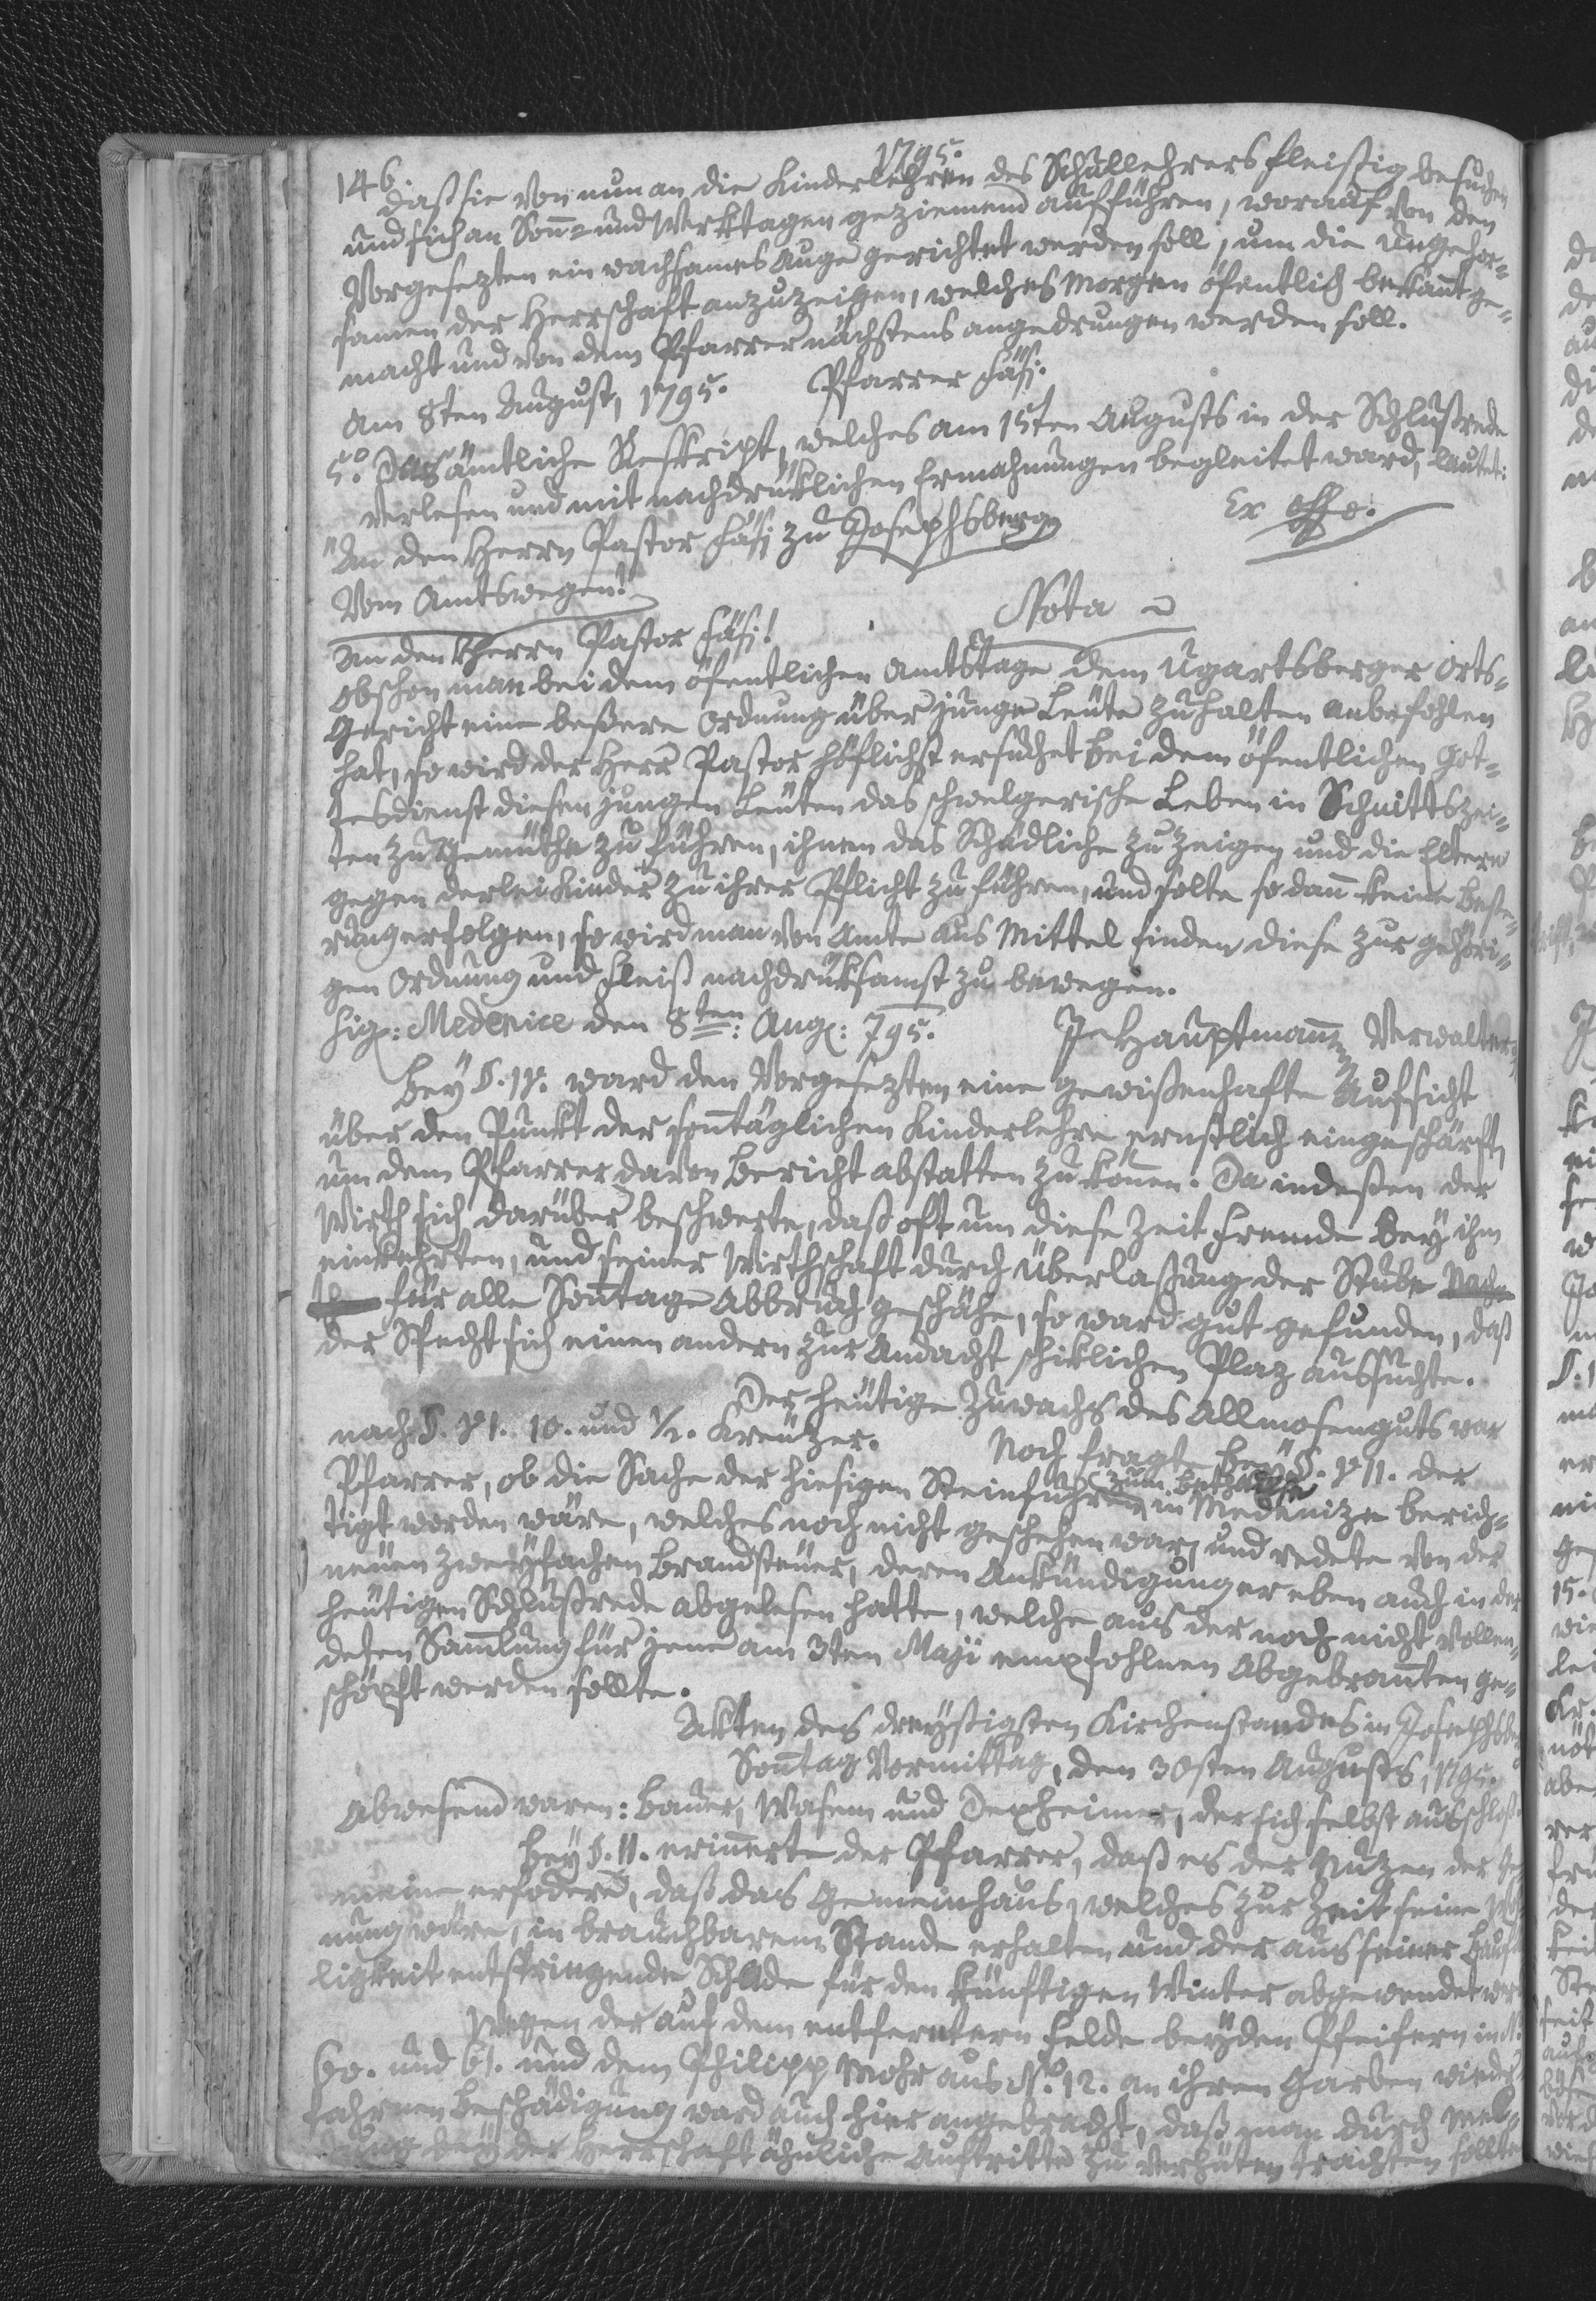 1795.
146.
daß sie von nun an die Kinderlehren des Schullehrers fleißig besuchen
und sich an Sonn- und Werktagen geziemend aufführen, worauf von den
Vorgesezten ein wachsames Auge gerichtet werden soll, um die Ungehor-
samen der Herrschaft anzuzeigen, welches Morgen öfentlich bekannt ge-
macht und von dem Pfarrer nächstens angedrungen werden soll.
Am 8ten August, 1795. Pfarrer Fäsi.
5.° Das ämtliche Reskript, welches am 15ten Augusts in der Schlußrede
verlesen und mit nachdrüklichen Ermahnungen begleitet ward, lautet:
"An den Herrn Pastor Fäsi zu Josephsberg Ex offo.
Vom Amtswegen!
Nota
An den Herrn Pastor Fäsi!
Obschon man bei dem öfentlichen Amtstage dem Ugartsberger Orts-
Gericht eine beßere Ordnung über junge Leute zu halten anbefohlen
hat, so wird der Herr Pastor höflichst ersuchet bei dem öfentlichen Got-
tesdienst diesen jungen Leuten das schwelgerische Leben in Schnittszei-
ten zu Gemüthe zu führen, ihnen das Schädliche zu zeigen und die Eltern
gegen derlei Kinder zu ihrer Pflicht zu führen, und solte so dann keine Beße-
rung erfolgen, so wird man von Amte aus Mittel finden diese zur gehöri-
gen Ordnung und Fleiß nachdruksamst zu bewegen.
Sig: Medenice den 8ten: Aug: 795. Hauptmann Verwalter
Bey ward den Vorgesezten eine gewißenhafte Aufsicht
über den Punkt der sonntäglichen Kinderlehre ernstlich eingeschärft,
um dem Pfarrer davon Bericht abstatten zu können. Da indeßen der
Wirth sich darüber beschwerte, daß oft um diese Zeit Fremde bey ihm
einkehrten, und seiner Wirthschaft durch Überlaßung der Stube
für alle Sonntage Abbruch geschähe, so ward gut gefunden, daß
der Specht sich einen andern zur Andacht schiklichen Plaz aussuchte.
Der heutige Zuwachs des Allmosenguts war
nach 10. und 1/2. Kreuzer. Noch fragte bey der
Pfarrer, ob die Sache der hiesigen Steinfuhren zum in Medenize berich-
tigt worden wäre, welches noch nicht geschehen war, und redete von der
neuen zweyfachen Brandsteuer, deren Ankündigung er eben auch in der
heutigen Schlußrede abgelesen hatte, welche aus der noch nicht vollen-
deten Sammlung für jene am 3ten Maji empfohlnen Abgebrannten ge-
schöpft werden sollte.
Akten des dreyßigsten Kirchenstandes in Josephsberg
Sonntag Vormittag, den 30sten Augusts, 1795.
Abwesend waren: Bauer, Wasem und Dexheimer, der sich selbst ausschloß.
Bey S. 11. erinnerte der Pfarrer, daß es der Nutzen der Ge-
meine erfodere, daß das Gemeinhaus, welches zur Zeit seine Woh-
nung wäre, in brauchbarem Stande erhalten und der aus seiner Baufäl-
ligkeit entspringende Schade für den künftigen Winter abgewendet werde
Wegen der auf dem entferntern Felde beyden Pfeifern in N.°
60. und 61. und dem Philipp Mohr aus N.° 12. an ihren Garben wieder-
fahrnen Beschädigung ward auch hier angebracht, daß man durch Mel-
dung bey der Herrschaft ähnliche Auftritte zu verhüten trachten sollte